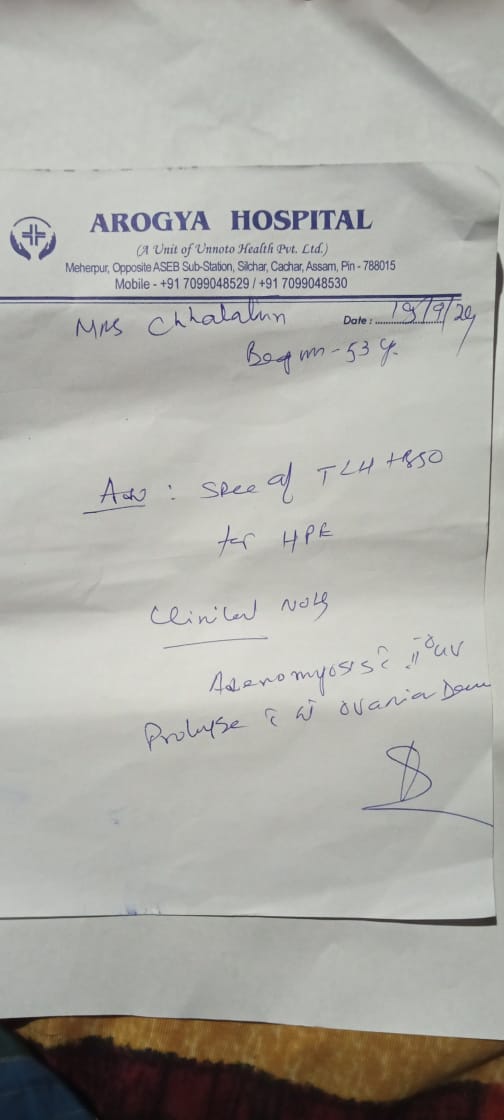 AROGYA HOSPITAL
(A Unit of Unnoto Health Pvt. Ltd.)
Meherpur, Opposite ASEB Sub-Station, Silchar, Cachar, Assam, Pin - 788015
Mobile - +91 7099048529 / +91 7099048530
Mrs
Date : 19/9/24
Begum - 53 y.
: Spec of TLH + BSO
for HPE
Clinical Note
Adenomyosis c̄ II° UV
Prolapse c̄ ovarian